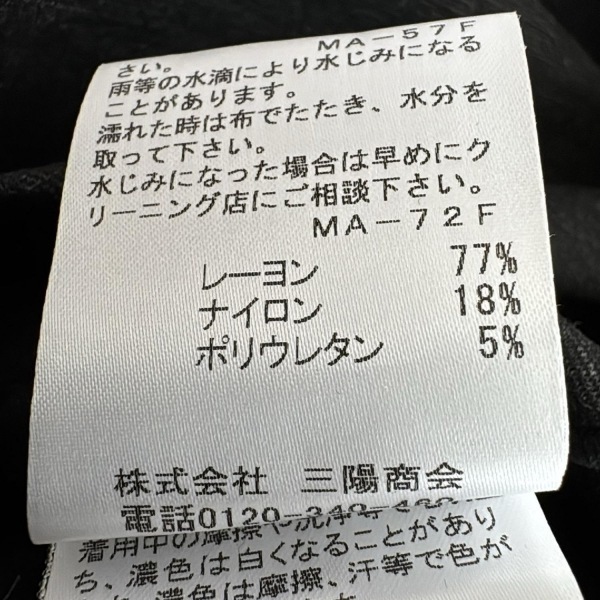 MA-57F
さい。
雨等の水滴により水じみになる
ことがあります。
濡れた時は布でたたき、水分を
取って下さい。
水じみになった場合は早めにク
リーニング店にご相談下さい。
MA-72F
レーヨン 77%
ナイロン 18%
ポリウレタン 5%
株式会社 三陽商会
電話0120-340-460
着用中の摩擦や洗浄等
ち、濃色は白くなることがあり
濃色は摩擦、汗等で色が